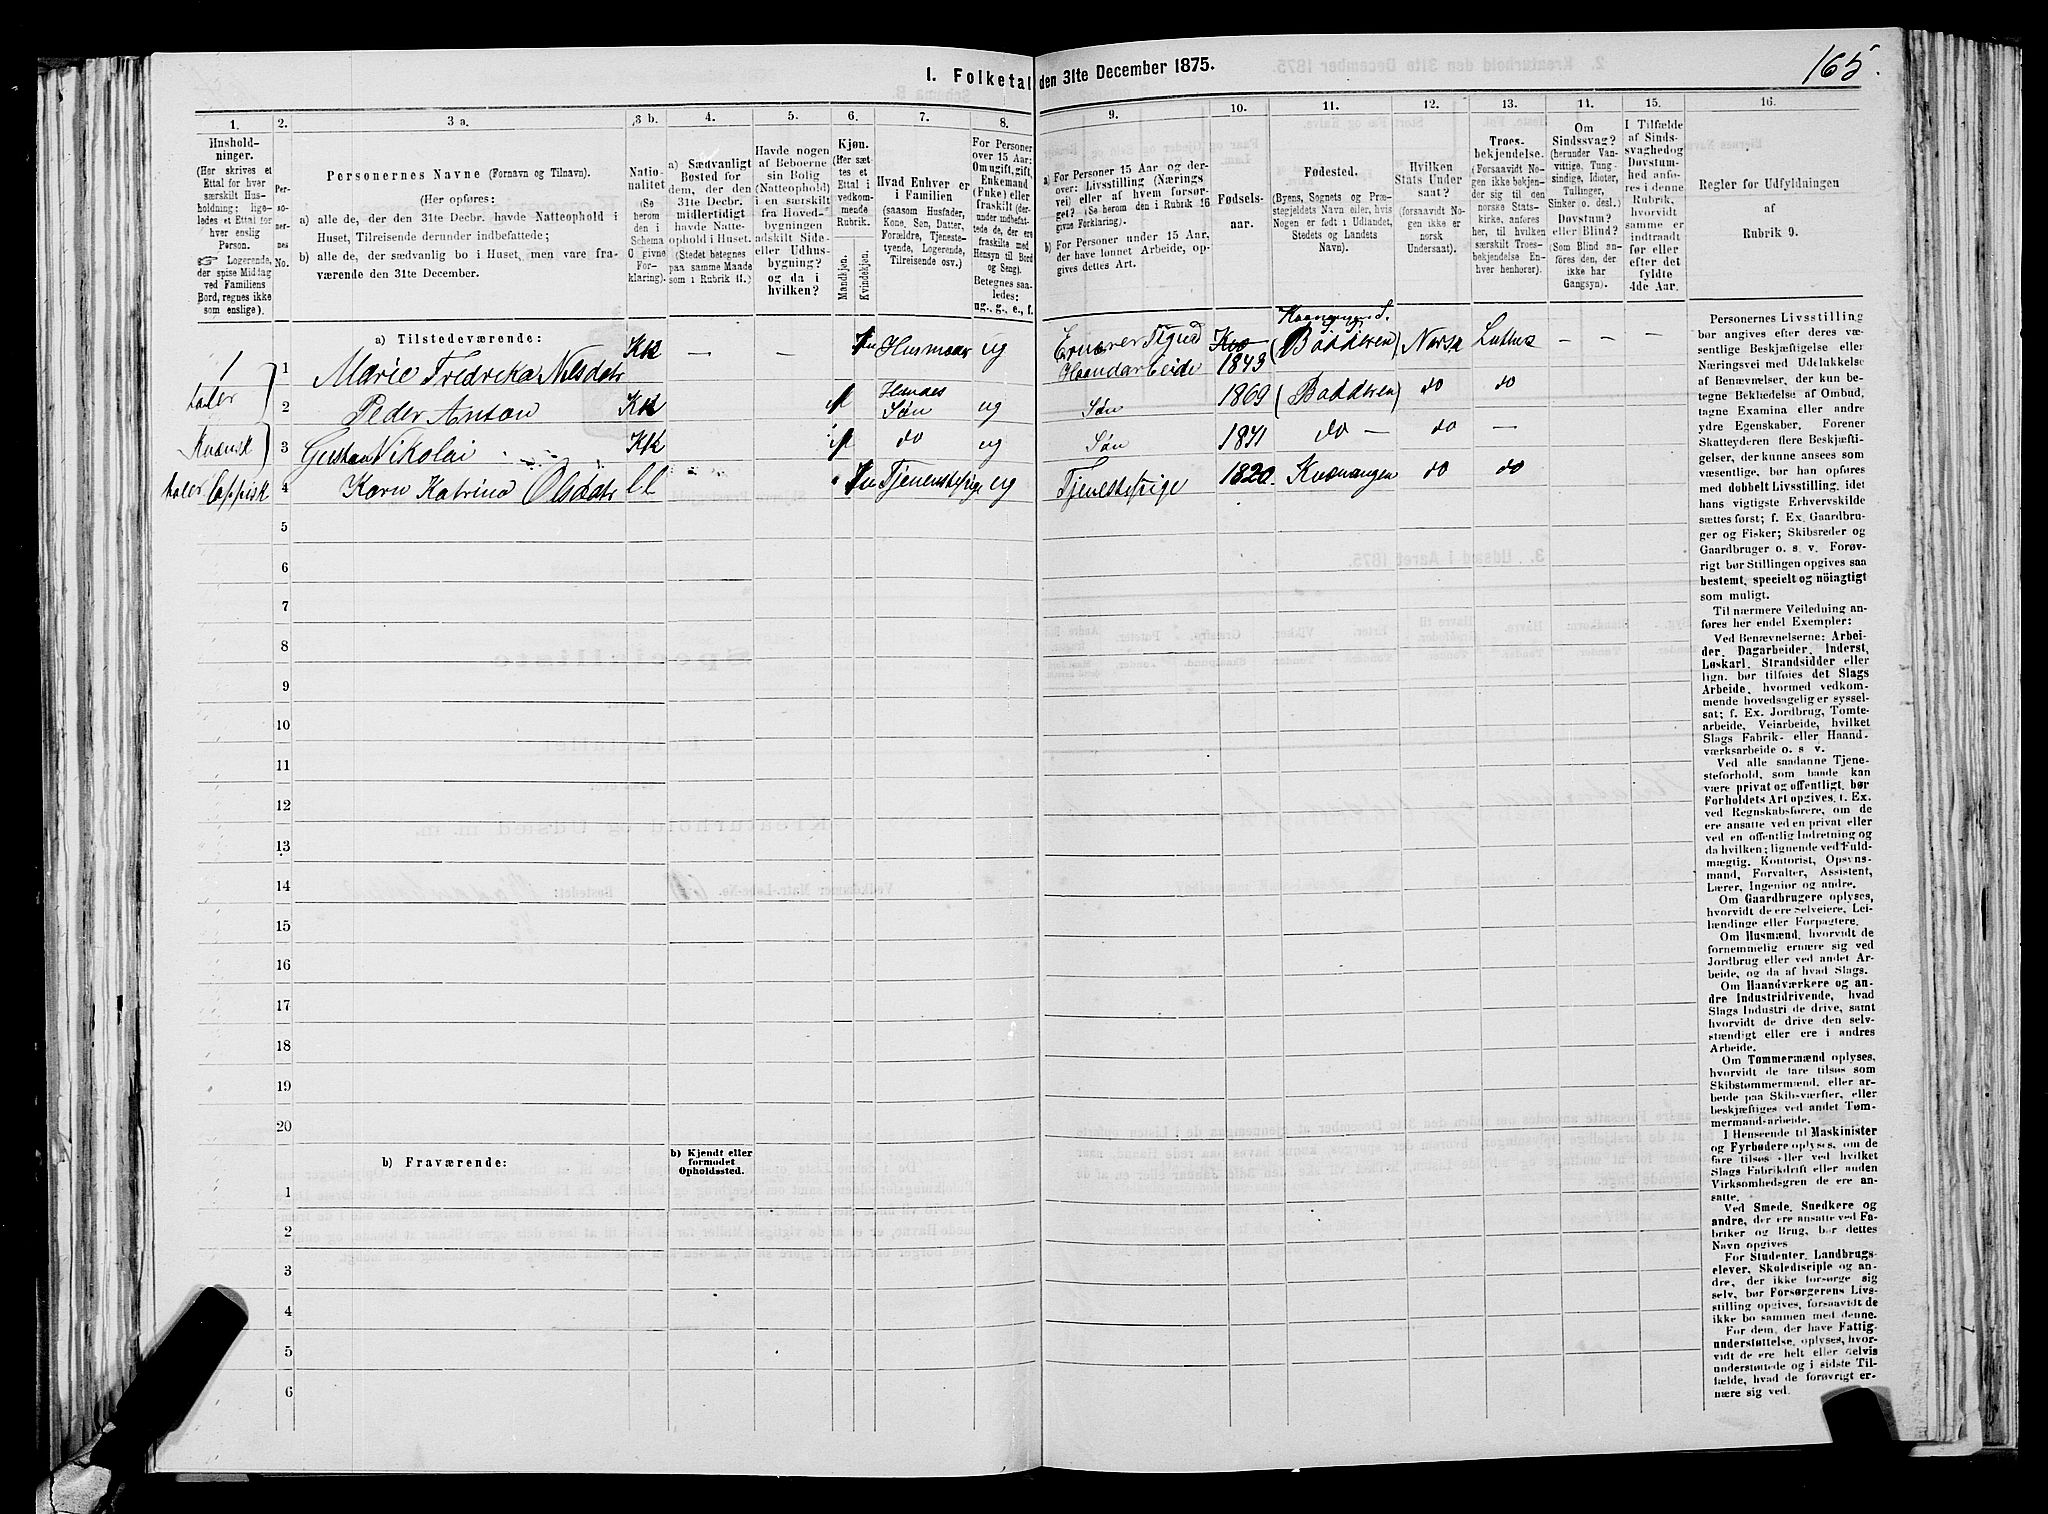 165.
1. Folketal den 31te December 1875.
1. 2. 3 a. 3 b. 4. 5. 6. 7. 8. 9. 10. 11. 12. 13. 14. 15. 16.
Hushold-
ninger.
(Her skrives et
Ettal for hver
særskilt Hus-
holdning; lige-
ledes et Ettal for
hver enslig
Person.
☞ Logerende,
der spise Middag
ved Familiens
Bord, regnes ikke
som enslige).
Per-
so-
ner-
nes
No.
Personernes Navne (Fornavn og Tilnavn).
(Her opføres:
a) alle de, der den 31te Decbr. havde Natteophold i
Huset, Tilreisende derunder indbefattede;
b) alle de, der sædvanlig bo i Huset, men vare fra-
værende den 31te December.
Natio-
nalitet
(Se
herom
den i
Schema
C givne
For-
klaring).
a) Sædvanligt
Bosted for
dem, der den
31te Decbr.
midlertidigt
havde Natte-
ophold i Huset.
(Stedet betegnes
paa samme Maade
som i Rubrik 11.)
Havde nogen
af Beboerne
sin Bolig
(Natteophold)
i en særskilt
fra Hoved-
bygningen
adskilt Side-
eller Udhus-
bygning?
og da i
hvilken?
Kjøn.
(Her sæt-
tes et
Ettal i
vedkom-
mende
Rubrik.
Mandkjøn.
Kvindekjøn.
Hvad Enhver er
i Familien
(saasom Husfader,
Kone, Søn, Datter,
Forældre, Tjeneste-
tyende, Logerende,
Tilreisende osv.)
For Personer
over 15 Aar:
Om ugift, gift,
Enkemand
(Enke) eller
fraskilt (der-
under indbefat-
tede de, der ere
fraskilte med
Hensyn til Bord
og Seng).
Betegnes saa-
ledes:
ug., g., e., f.
a) For Personer 15 Aar og der-
over: Livsstilling (Nærings-
vei) eller af hvem forsør-
get? (Se herom den i Rubrik 16
givne Forklaring).
b) For Personer under 15 Aar,
der have lønnet Arbeide, op-
gives dettes Art.
Fødsels-
aar.
Fødested.
(Byens, Sognets og Præ-
stegjeldets Navn eller, hvis
Nogen er født i Udlandet,
Stedets og Landets
Navn).
Hvilken
Stats Under-
saat?
(forsaavidt No-
gen ikke er
norsk
Undersaat).
Troes-
bekjendelse.
(Forsaavidt No-
gen ikke bekjen-
der sig til
Norges Stats-
kirke, anføres
her, til hvilken
særskilt Troes-
bekjendelse En-
hver henhører).
Om
Sindssvag?
(herunder Van-
vittige, Tung-
sindige, Idioter,
Tullinger,
Sinker o. desl.)
Døvstum?
eller Blind?
(Som Blind an-
føres den, der
ikke har
Gangsyn).
I Tilfælde
af Sinds-
svaghed og
Døvstum-
hed anfø-
res i denne
Rubrik,
hvorvidt
samme er
indtraadt
før eller
efter det
fyldte
4de Aar.
Regler for Udfyldningen
af
Rubrik 9.
a) Tilstedeværende:
1 1 Marie Fredreka Nilsdatr KK — — ug 1843 Kvænangen (Baddøren) Norsk — —
taler 2 Peder Anton KK Søn ug Søn 1869 (Baddøren) do do
Kvænsk 3 Gustav Nikolai KK do ug Søn 1871 do — do —
taler Lappisk 4 Karn Katrina Olsdatr LL Tjenestepige ug Tjenestepige 1820. Kvænangen do do
5
6
7
8
9
10
11
12
13
14
15
16
17
18
19
20
b) Fraværende:
b) Kjendt eller
formodet
Opholdssted.
1
2
3
4
5
6
Personernes Livsstilling
bør angives efter deres væ-
sentlige Beskjæftigelse eller
Næringsvei med Udelukkelse
af Benævnelser, der kun be-
tegne Beklædelse af Ombud,
tagne Examina eller andre
ydre Egenskaber. Forener
Skatteyderen flere Beskjæfti-
gelser, der kunne ansees som
væsentlige, bør han opføres
med dobbelt Livsstilling, idet
hans vigtigste Erhvervskilde
sættes først; f. Ex. Gaardbru-
ger og Fisker; Skibsreder og
Gaardbruger o. s. v. Forøv-
rigt bør Stillingen opgives saa
bestemt, specielt og nøiagtigt
som muligt.
Til nærmere Veiledning an-
føres her endel Exempler:
Ved Benævnelserne: Arbei-
der, Dagarbeider, Inderst,
Løskarl, Strandsidder eller
lign. bør tilføies det Slags
Arbeide, hvormed vedkom-
mende hovedsagelig er syssel-
sat; f. Ex. Jordbrug, Tomte-
arbeide, Veiarbeide, hvilket
Slags Fabrik- eller Haand-
værksarbeide o. s. v.
Ved alle saadanne Tjene-
steforhold, som baade kan
være privat og offentligt, bør
Forholdets Art opgives, t. Ex.
ved Regnskabsførere, om de
ere ansatte ved en privat eller
ved en offentlig Indretning og
da hvilken; lignende ved Fuld-
mægtig, Kontorist, Opsyns-
mand, Forvalter, Assistent,
Lærer, Ingeniør og andre.
Om Gaardbrugere oplyses,
hvorvidt de ere Selveiere, Lei-
lændinge eller Forpagtere.
Om Husmænd, hvorvidt de
fornemmelig ernære sig ved
Jordbrug eller ved andet Ar-
beide, og da af hvad Slags.
Om Haandværkere og an-
dre Industridrivende, hvad
Slags Industri de drive, samt
hvorvidt de drive den selv-
stændigt eller ere i andres
Arbeide.
Om Tømmermænd oplyses,
hvorvidt de fare tilsøs som
Skibstømmermænd, eller ar-
beide paa Skibsværfter, eller
beskjæftiges ved andet Tøm-
mermandarbeide.
I Henseende til Maskinister
og Fyrbødere oplyses, om de
fare tilsøs eller ved hvilket
Slags Fabrikdrift eller anden
Virksomhedsgren de ere an-
satte.
Ved Smede, Snedkere og
andre, der ere ansatte ved Fa-
briker og Brug, bør dettes
Navn opgives
For Studenter, Landbrugs-
elever, Skoledisciple og an-
dre, der ikke forsørge sig
selv, bør Forsørgerens Livs-
stilling opgives, forsaavidt de
ikke bo sammen med denne.
For dem, der have Fattig-
understøttelse, oplyses, hvor-
vidt de ere helt eller delvis
understøttede og i sidste Til-
fælde, hvad de forøvrigt er-
nære sig ved.